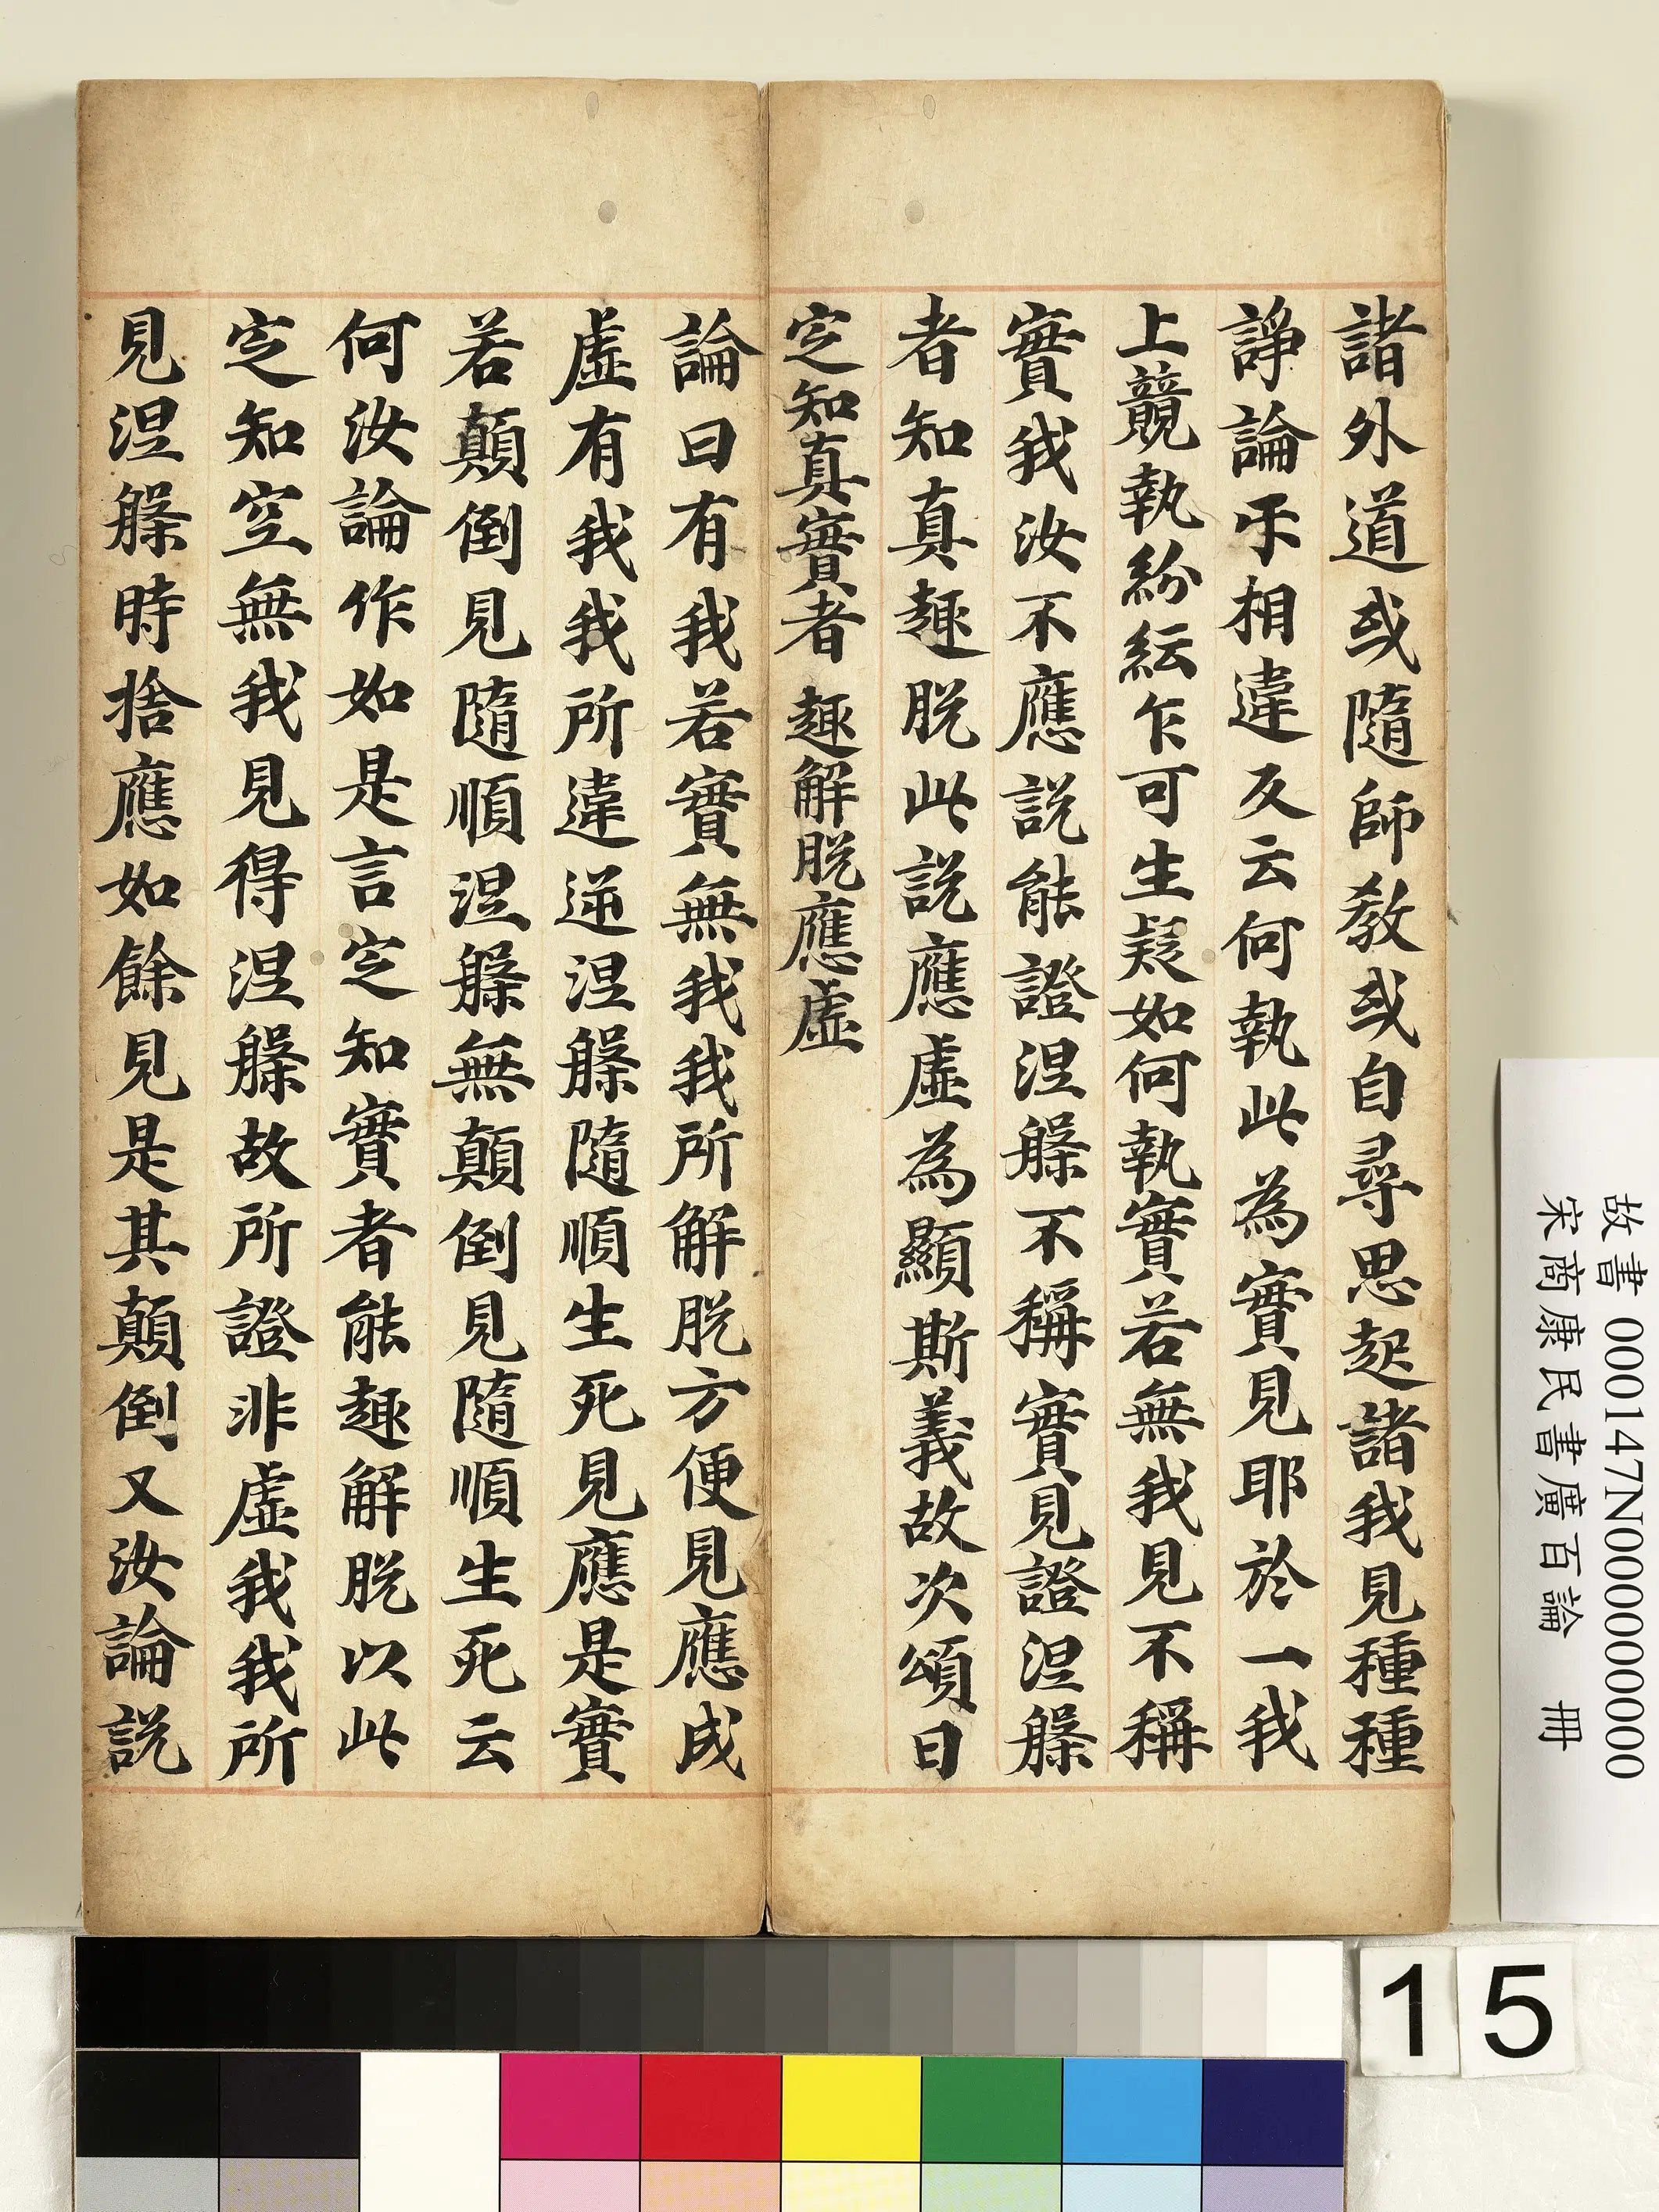 諸外道或隨師教或自尋思起諸我見種種
諍論乎相違反云何執此為實見耶於一我
上競執紛紜乍可生疑如何執實若無我見不稱
實我汝不應説能證涅槃不稱實見證涅槃
者知真趣脱此説應虛為顯斯義故次頌曰
定知真實者 趣解脱應虛
論曰有我若實無我我所解脱方便見應成
虛有我我所違逆涅槃隨順生死見應是實
若顛倒見隨順涅槃無顛倒見隨順生死云
何汝論作如是言定知實者能趣解脱以此
定知空無我見得涅槃故所證非虛我我所
見涅槃時捨應如餘見是其顛倒又汝論説
故書 000147N000000000
宋商康民書廣百論 冊
15